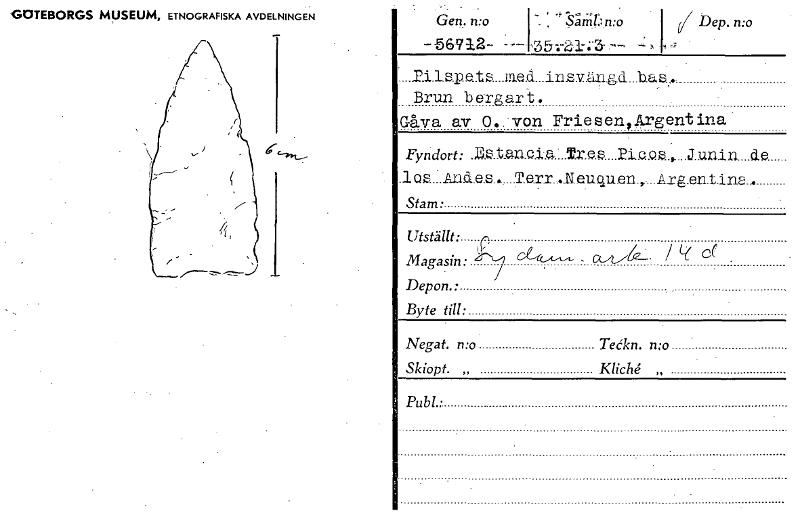 GÖTEBORGS MUSEUM, ETNOGRAFISKA AVDELNINGEN
6 cm
Gen. n:o Saml: n:o Dep. n:o
-56712- 35.21.3
Pilspets med insvängd bas.
Brun bergart.
Gåva av O. von Friesen,Argentina
Fyndort: Estancia Tres Picos, Junin de
los Andes. Terr.Neuquen, Argentina.
Stam:
Utställt:
Magasin: Sydam. ark. 14 d
Depon.:
Byte till:
Negat. n:o Teckn. n:o
Skiopt. „ Kliché „
Publ.: